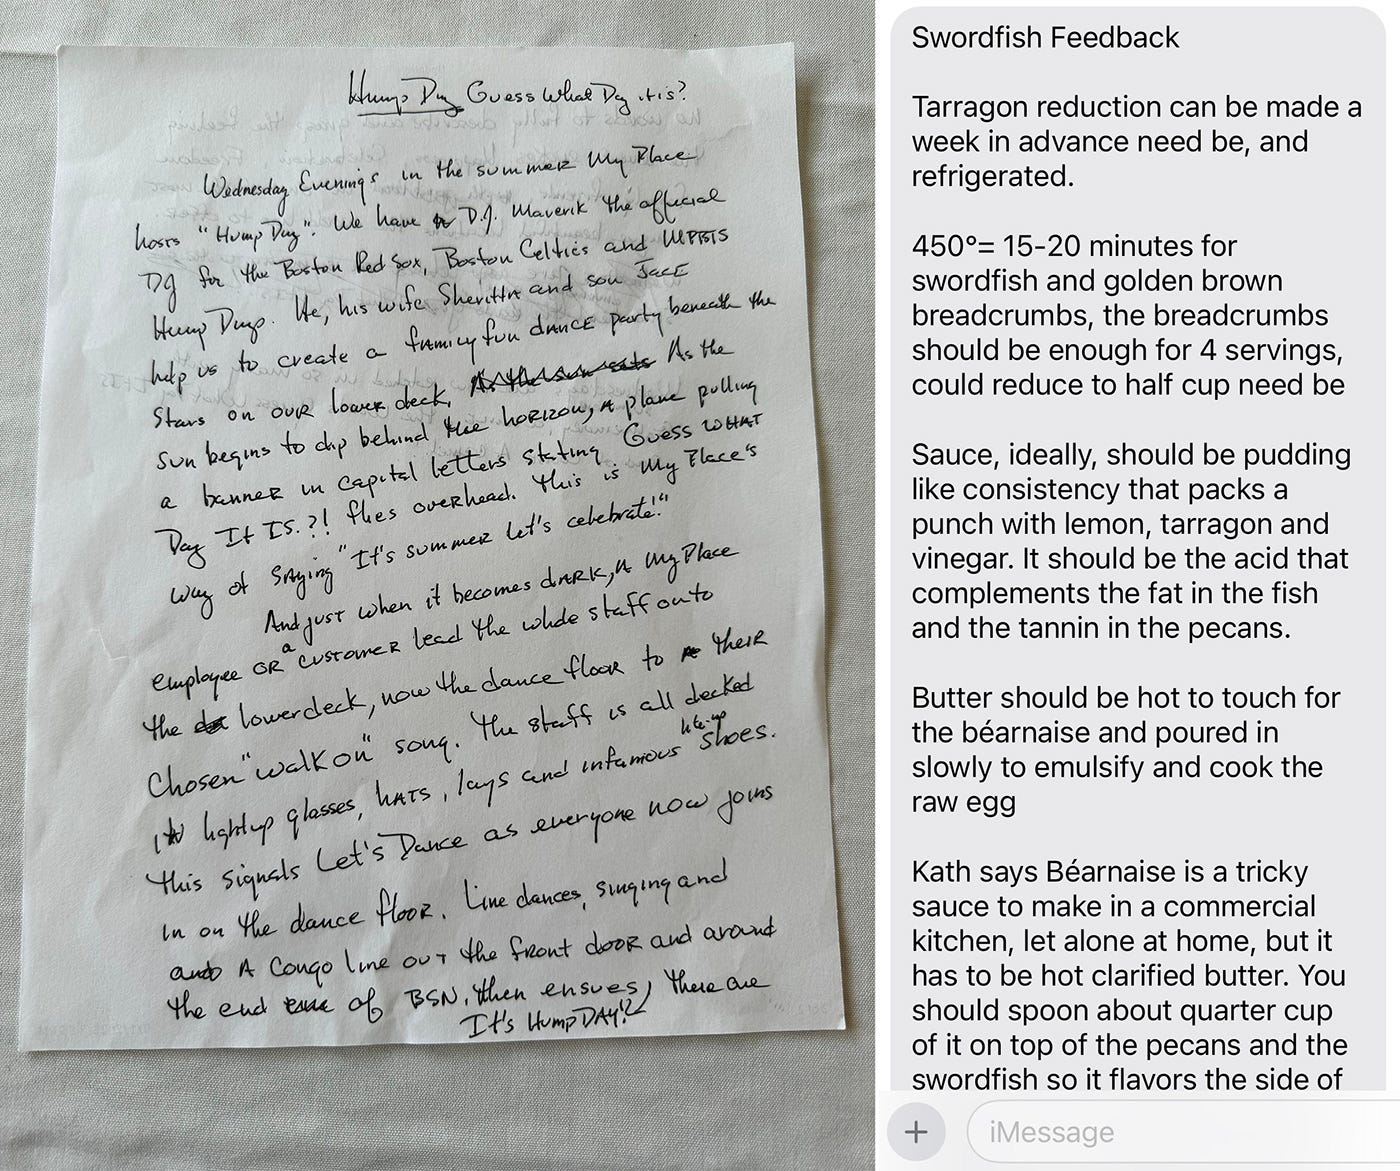 Hump Day Guess What Day it is?
Wednesday Evenings in the summer My Place
hosts "Hump Day". We have D.J. Maverik the official
DJ for the Boston Red Sox, Boston Celtics and MPBTS
Hump Days. He, his wife Sheritta and son Jace
help us to create a family fun dance party beneath the
Stars on our lower deck. As the sun sets As the
sun begins to dip behind the horizon, a plane pulling
a banner in capital letters stating Guess WHAT
Day It IS.?! flies overhead. This is My Place's
way of saying "It's summer let's celebrate!"
And just when it becomes dark, a My Place
employee or a customer lead the whole staff onto
the lower deck, now the dance floor to their
Chosen "walk on" song. The staff is all decked
lite-up
in lightup glasses, hats, lays and infamous shoes.
This signals Let's Dance as everyone now joins
in on the dance floor. Line dances, singing and
and A Congo line out the front door and around
the end of BSN, then ensues, There are
It's Hump DAY!?
Swordfish Feedback
Tarragon reduction can be made a
week in advance need be, and
refrigerated.
450°= 15-20 minutes for
swordfish and golden brown
breadcrumbs, the breadcrumbs
should be enough for 4 servings,
could reduce to half cup need be
Sauce, ideally, should be pudding
like consistency that packs a
punch with lemon, tarragon and
vinegar. It should be the acid that
complements the fat in the fish
and the tannin in the pecans.
Butter should be hot to touch for
the béarnaise and poured in
slowly to emulsify and cook the
raw egg
Kath says Béarnaise is a tricky
sauce to make in a commercial
kitchen, let alone at home, but it
has to be hot clarified butter. You
should spoon about quarter cup
of it on top of the pecans and the
swordfish so it flavors the side of
iMessage